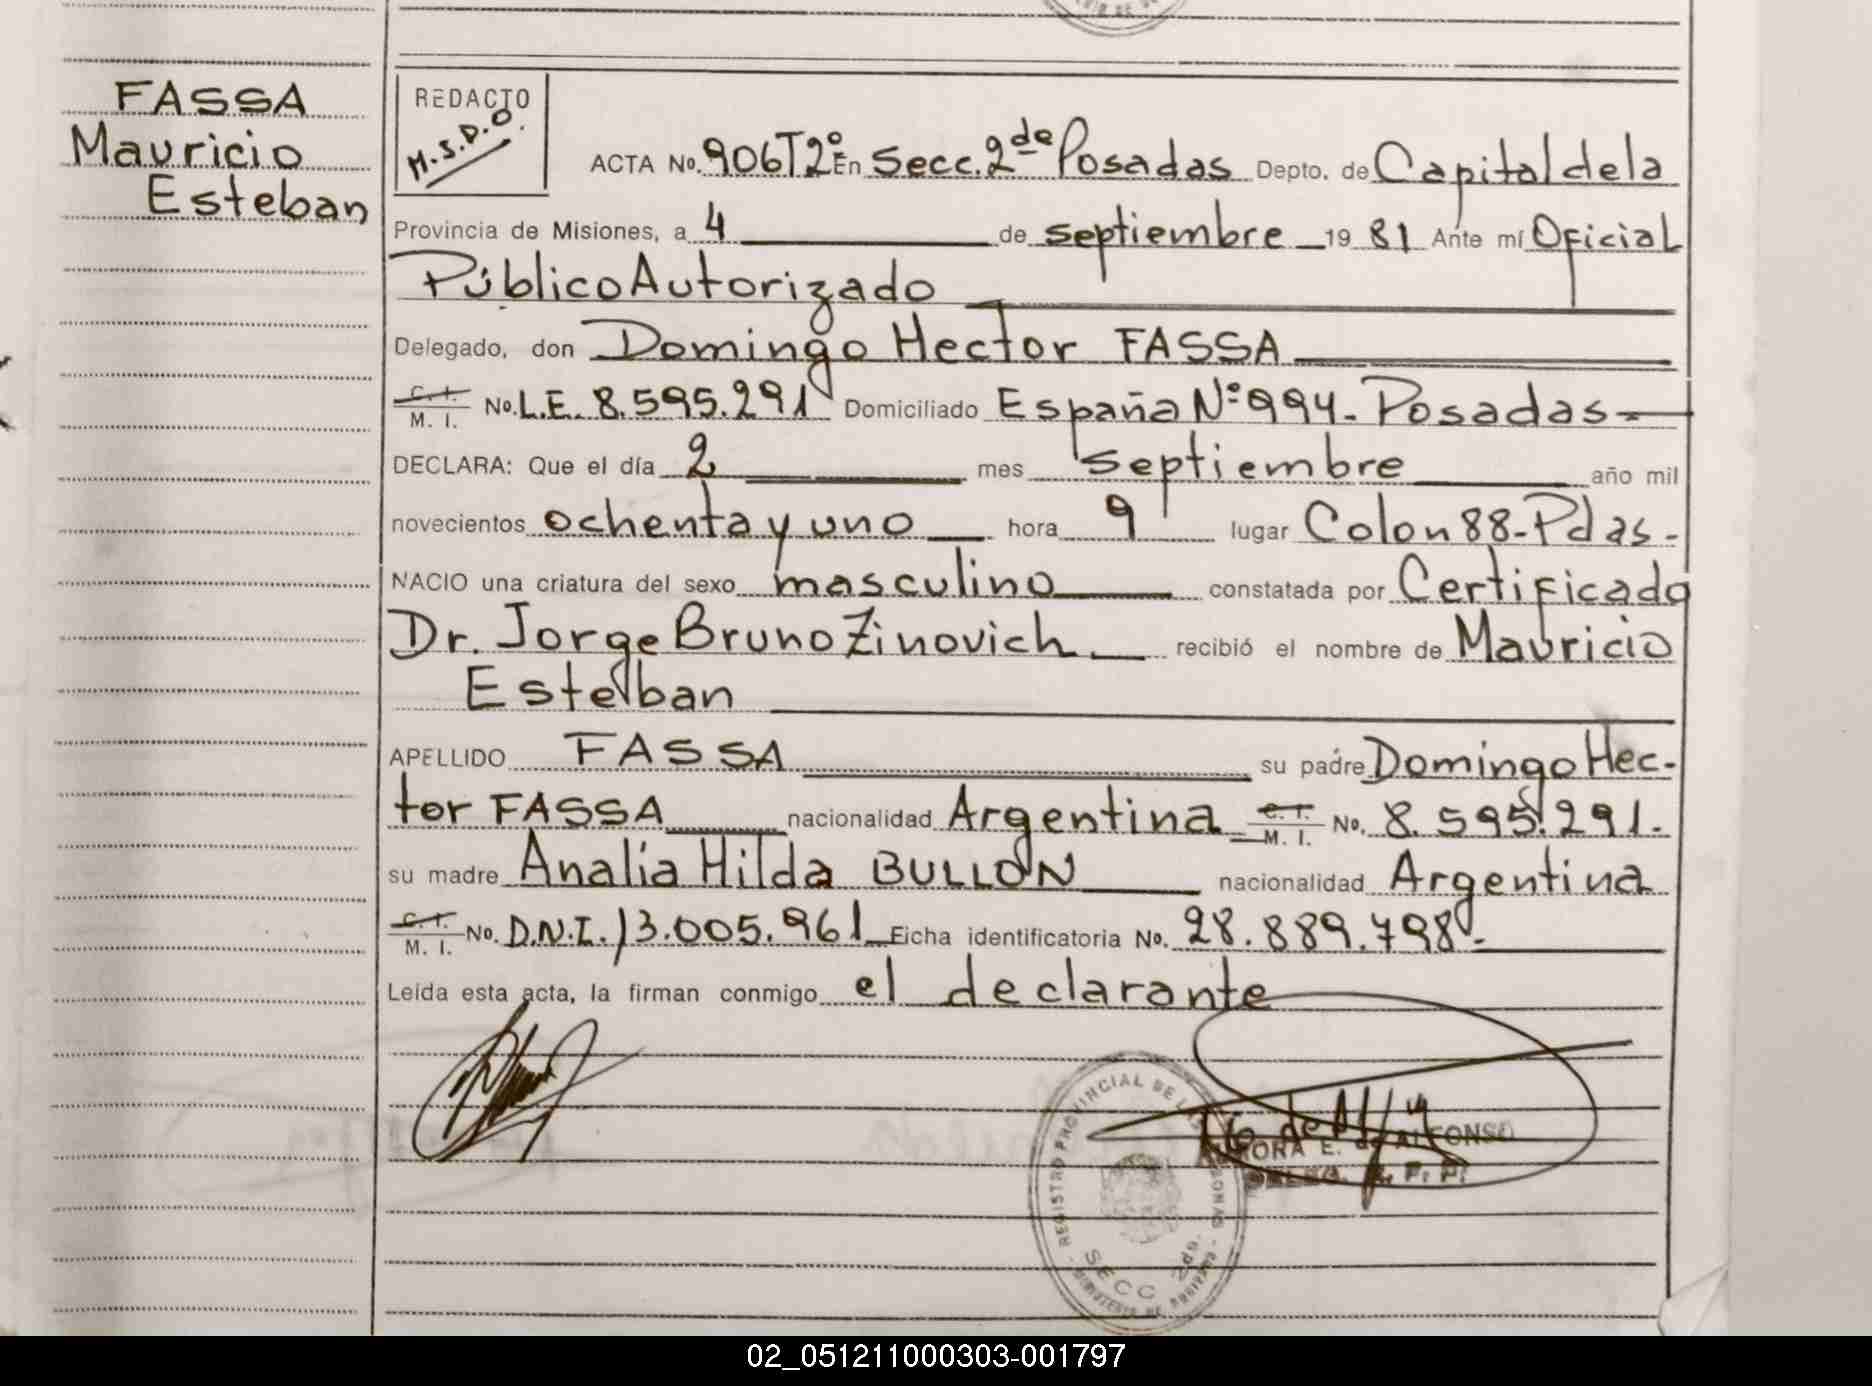 FASSA
Mauricio
Esteban
REDACTO
M.S.D.O.
ACTA No. 906T2º En Secc. 2da Posadas Depto. de Capital dela
Provincia de Misiones, a 4 de septiembre 19 81 Ante mí Oficial
Público Autorizado
Delegado, don Domingo Hector FASSA
C. I.
M. I. No. L.E. 8.595.291 Domiciliado España Nº 994. Posadas
DECLARA: Que el día 2 mes septiembre año mil
novecientos ochenta y uno hora 9 lugar Colon 88-Pdas-
NACIO una criatura del sexo masculino constatada por Certificado
Dr. Jorge Bruno Zinovich recibió el nombre de Mauricio
Esteban
APELLIDO FASSA su padre Domingo Hec-
tor FASSA nacionalidad Argentina C. I. M. I. No. 8.595.291.
su madre Analía Hilda BULLON nacionalidad Argentina
C. I.
M. I. No. D.N.I. 13.005.961 Ficha identificatoria No. 28.889.798.
Leída esta acta, la firman conmigo el declarante
REGISTRO PROVINCIAL DE LAS PERSONAS
SECC 2da.
E. de ALFONSO
02_051211000303-001797